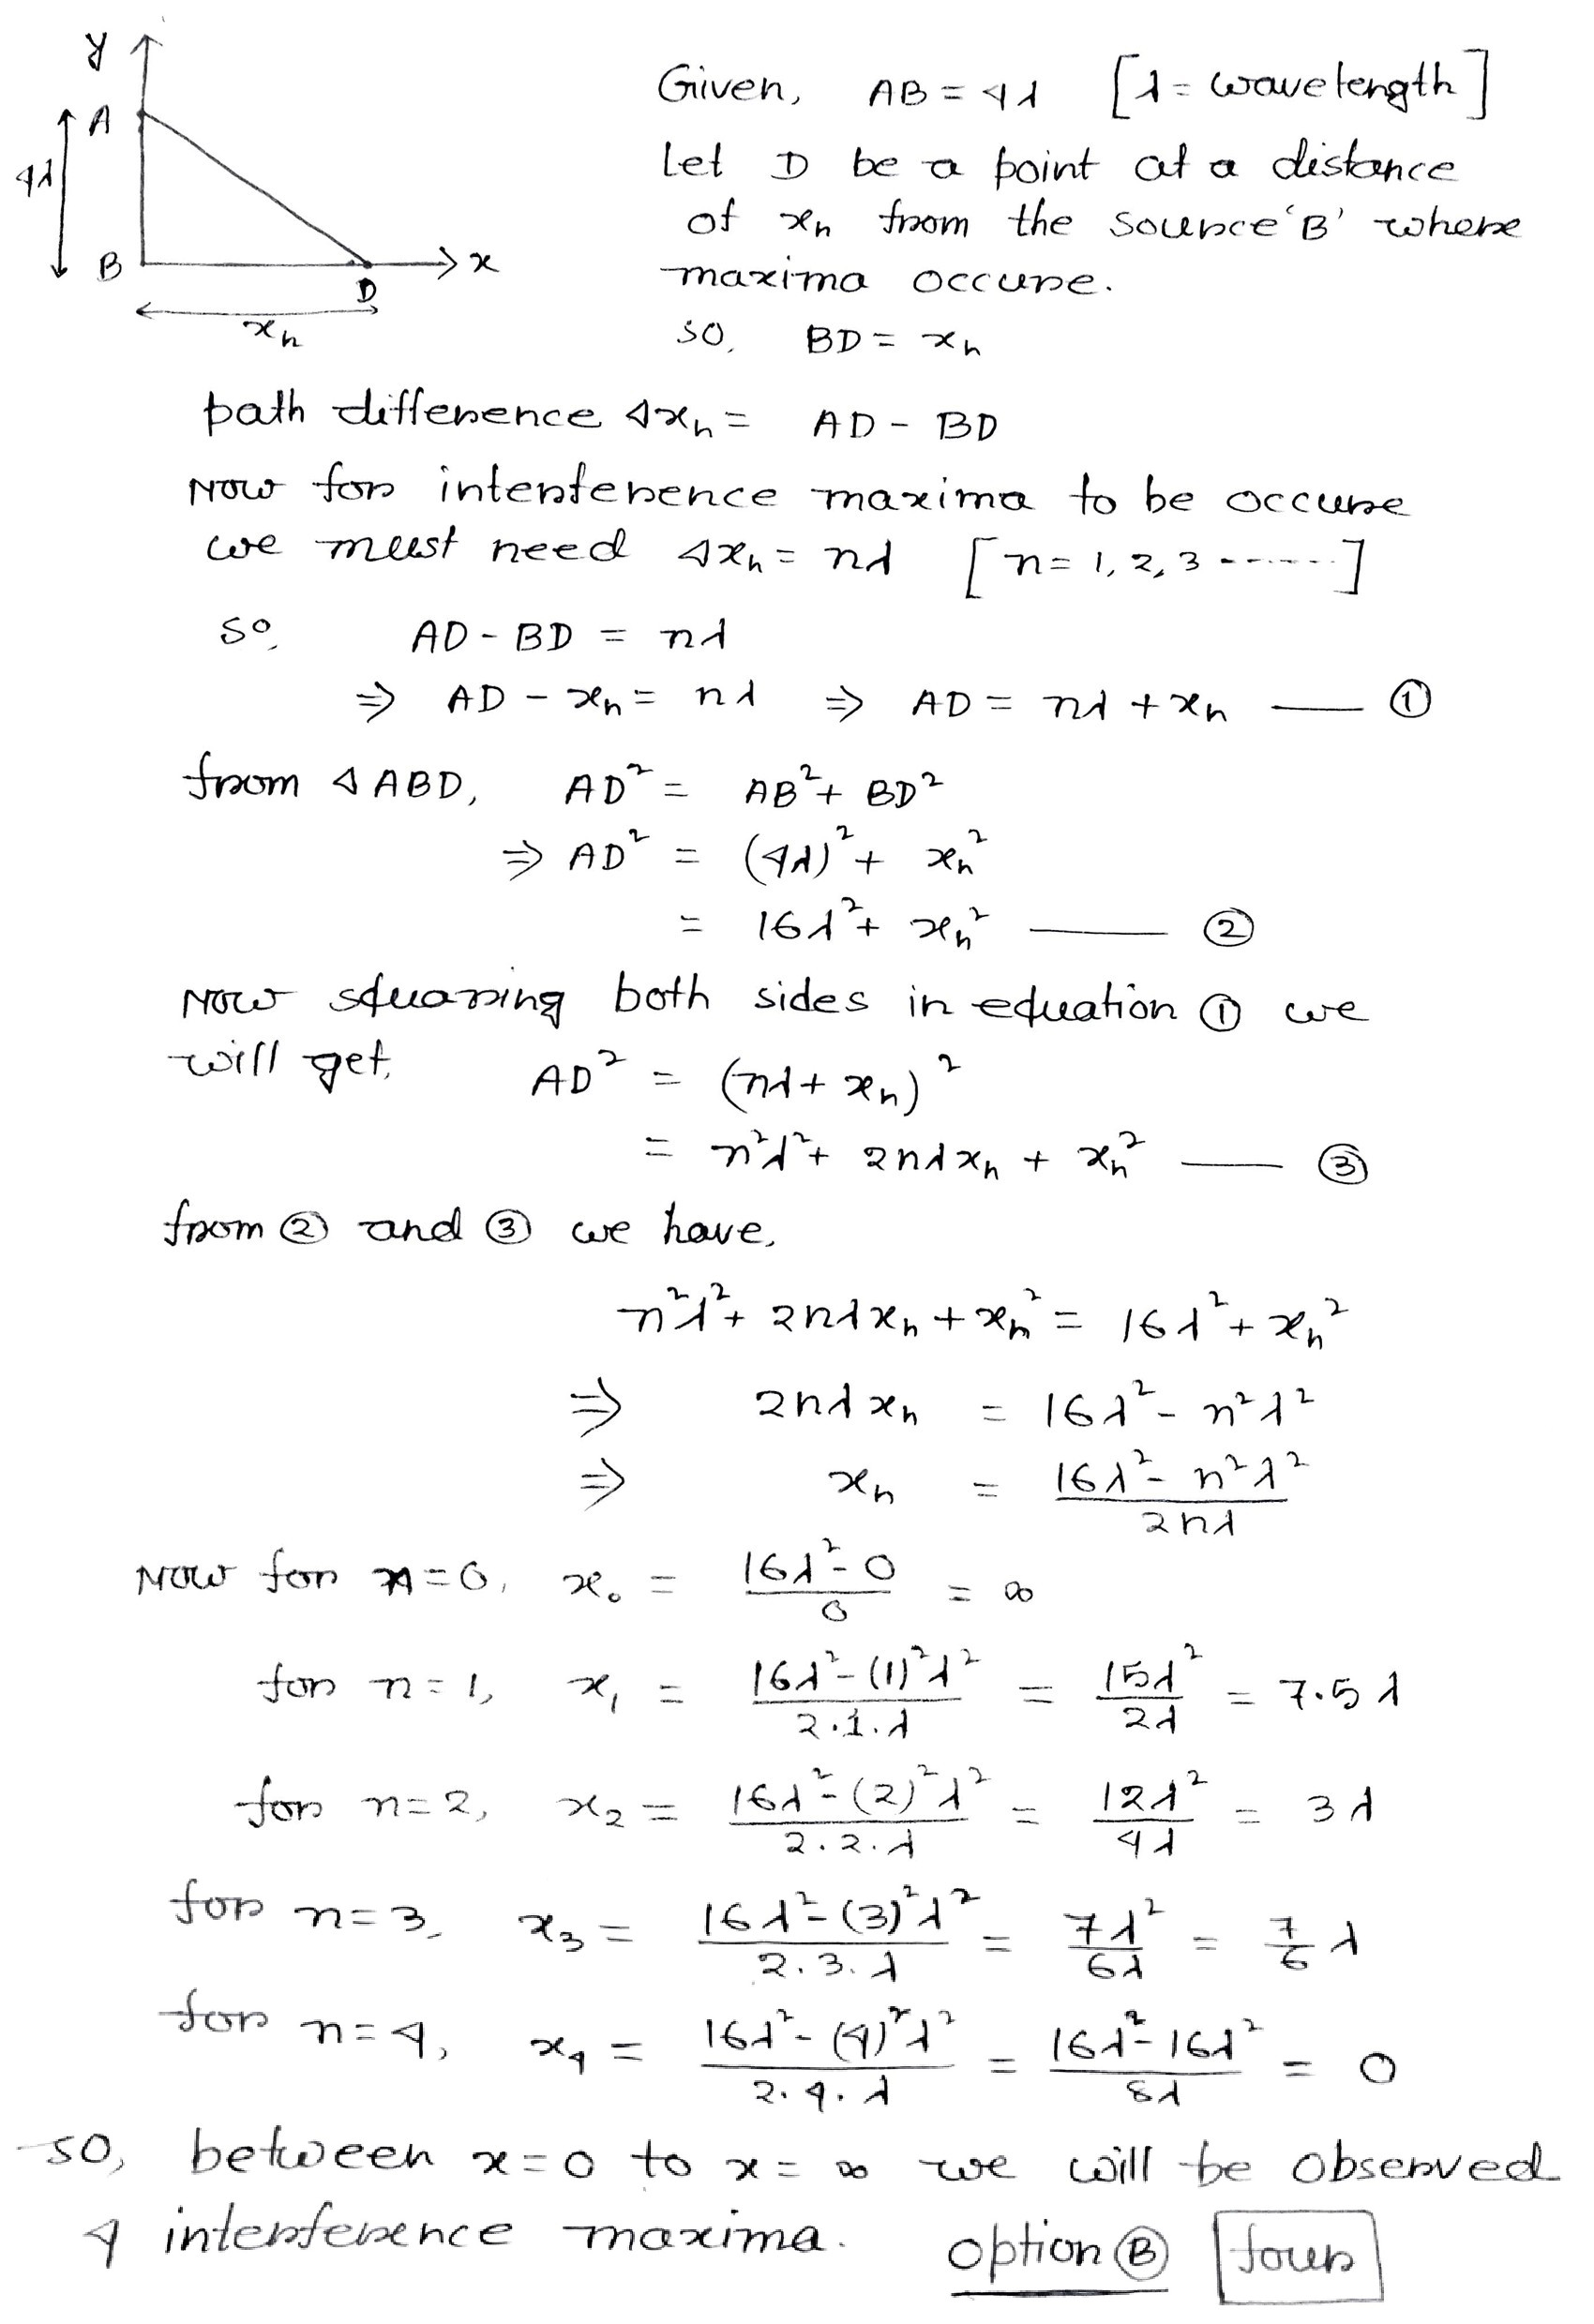 y
A
4λ
B
x
D
xₙ
Given, AB = 4λ [λ = wavelength]
Let D be a point at a distance
of xₙ from the source 'B' where
maxima occure.
so, BD = xₙ
path difference Δxₙ = AD - BD
Now for interference maxima to be occure
we must need Δxₙ = nλ [n = 1, 2, 3 ------]
so, AD - BD = nλ
⇒ AD - xₙ = nλ ⇒ AD = nλ + xₙ — ①
from Δ ABD, AD² = AB² + BD²
⇒ AD² = (4λ)² + xₙ²
= 16λ² + xₙ² — ②
Now squaring both sides in equation ① we
will get, AD² = (nλ + xₙ)²
= n²λ² + 2nλxₙ + xₙ² — ③
from ② and ③ we have,
n²λ² + 2nλxₙ + xₙ² = 16λ² + xₙ²
⇒ 2nλxₙ = 16λ² - n²λ²
⇒ xₙ = (16λ² - n²λ²)/(2nλ)
Now for n = 0, x₀ = (16λ² - 0)/0 = ∞
for n = 1, x₁ = (16λ² - (1)²λ²)/(2.1.λ) = 15λ²/2λ = 7.5λ
for n = 2, x₂ = (16λ² - (2)²λ²)/(2.2.λ) = 12λ²/4λ = 3λ
for n = 3, x₃ = (16λ² - (3)²λ²)/(2.3.λ) = 7λ²/6λ = 7/6 λ
for n = 4, x₄ = (16λ² - (4)²λ²)/(2.4.λ) = (16λ² - 16λ²)/8λ = 0
so, between x = 0 to x = ∞ we will be observed
4 interference maxima. option Ⓑ four